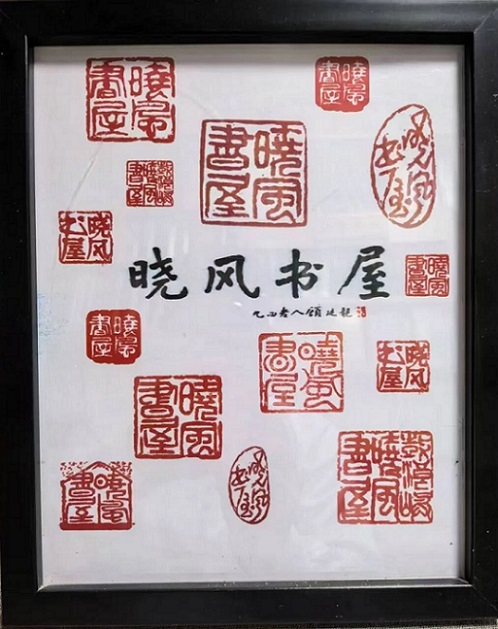 曉風書屋
曉風書屋
曉風書屋
晓风书屋
曉風書屋
晓风书屋
晓风书屋
曉風書屋
九四老人顧廷龍
曉風書屋
曉風書屋
晓风书屋
曉風書屋
鼓浪嶼曉風書屋
曉風書屋